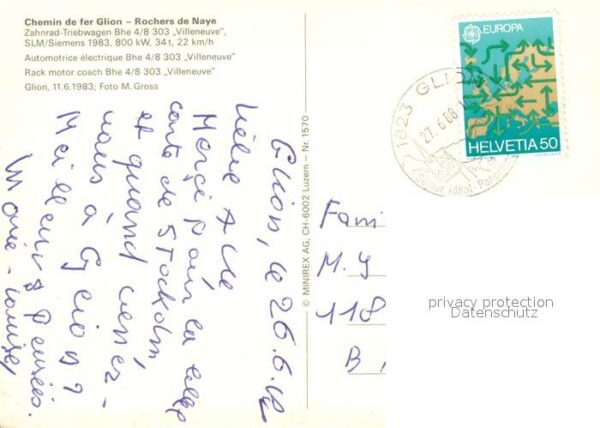 Chemin de fer Glion – Rochers de Naye
Zahnrad-Triebwagen Bhe 4/8 303 „Villeneuve”,
SLM/Siemens 1983, 800 kW, 34 t, 22 km/h
Automotrice électrique Bhe 4/8 303 „Villeneuve”
Rack motor coach Bhe 4/8 303 „Villeneuve”
Glion, 11.6.1983; Foto M. Gross
Glion, le 26.6.
Merci pour la belle
carte de Stockholm,
et quand venez-
vous à Glion?
Meilleures Pensées.
Marie-Louise,
© MINIREX AG, CH-6002 Luzern – Nr. 1570
EUROPA
HELVETIA 50
1823 GLION
27.6.88
Fam
M. G
118
B
privacy protection
Datenschutz